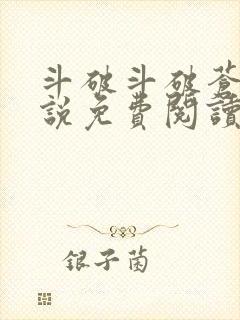 斗破斗破蒼
說免費閱讀
银子茵